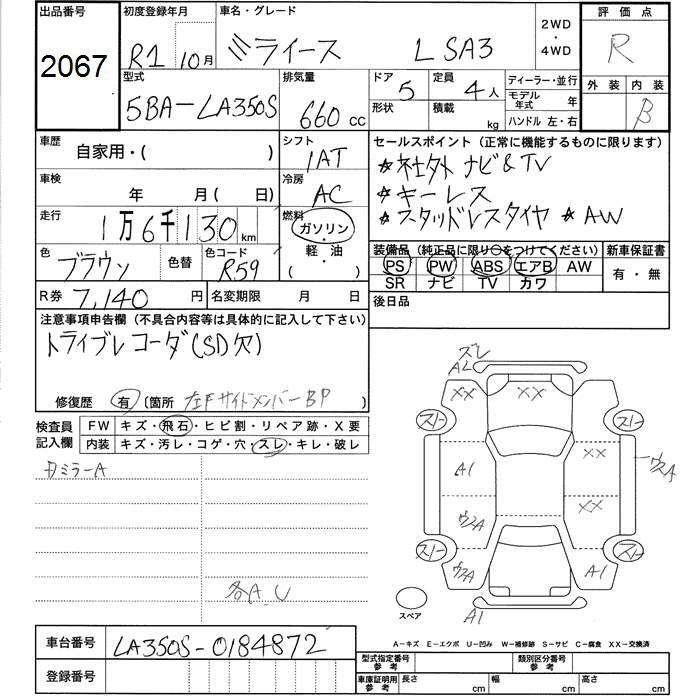 出品番号 初度登録年月 車名・グレード 2WD・4WD 評価点
2067 R1 10月 ミライース L SA3 R
型式 排気量 ドア 定員 ディーラー・並行 外装 内装
5BA-LA350S 660 cc 5 4人 モデル年式 年 B
形状 積載 kg ハンドル 左・右
車歴 自家用・( ) シフト 1AT セールスポイント (正常に機能するものに限ります)
★社外 ナビ&TV
車検 年 月( 日) 冷房 AC ★キーレス
走行 1万6千130km 燃料 ガソリン・軽油・( ) ★スタッドレスタイヤ ★AW
色 ブラウン 色替 色コード R59 装備品 (純正品に限り〇をつけてください) 新車保証書
PS PW ABS エアB AW 有・無
SR ナビ TV カワ
R券 7,140円 名変期限 月 日 後日品
注意事項申告欄 (不具合内容等は具体的に記入して下さい)
トライブレコーダ(SD欠)
修復歴 有 〔箇所 左Fサイドメンバー BP 〕
検査員記入欄 FW キズ・飛石・ヒビ割・リペア跡・X要
内装 キズ・汚レ・コゲ・穴・スレ・キレ・破レ
ミラーA
各A、U
ズレ
A2
XX XX
スト スト
A1 XX ウスA
ウスA XX
スト スト
ウスA A1
スペア A1
A-キズ E-エクボ U-凹み W-補修跡 S-サビ C-腐食 XX-交換済
車台番号 LA350S-0184872
登録番号
型式指定番号 参考 類別区分番号 参考
車庫証明用 参考 長さ cm 幅 cm 高さ cm